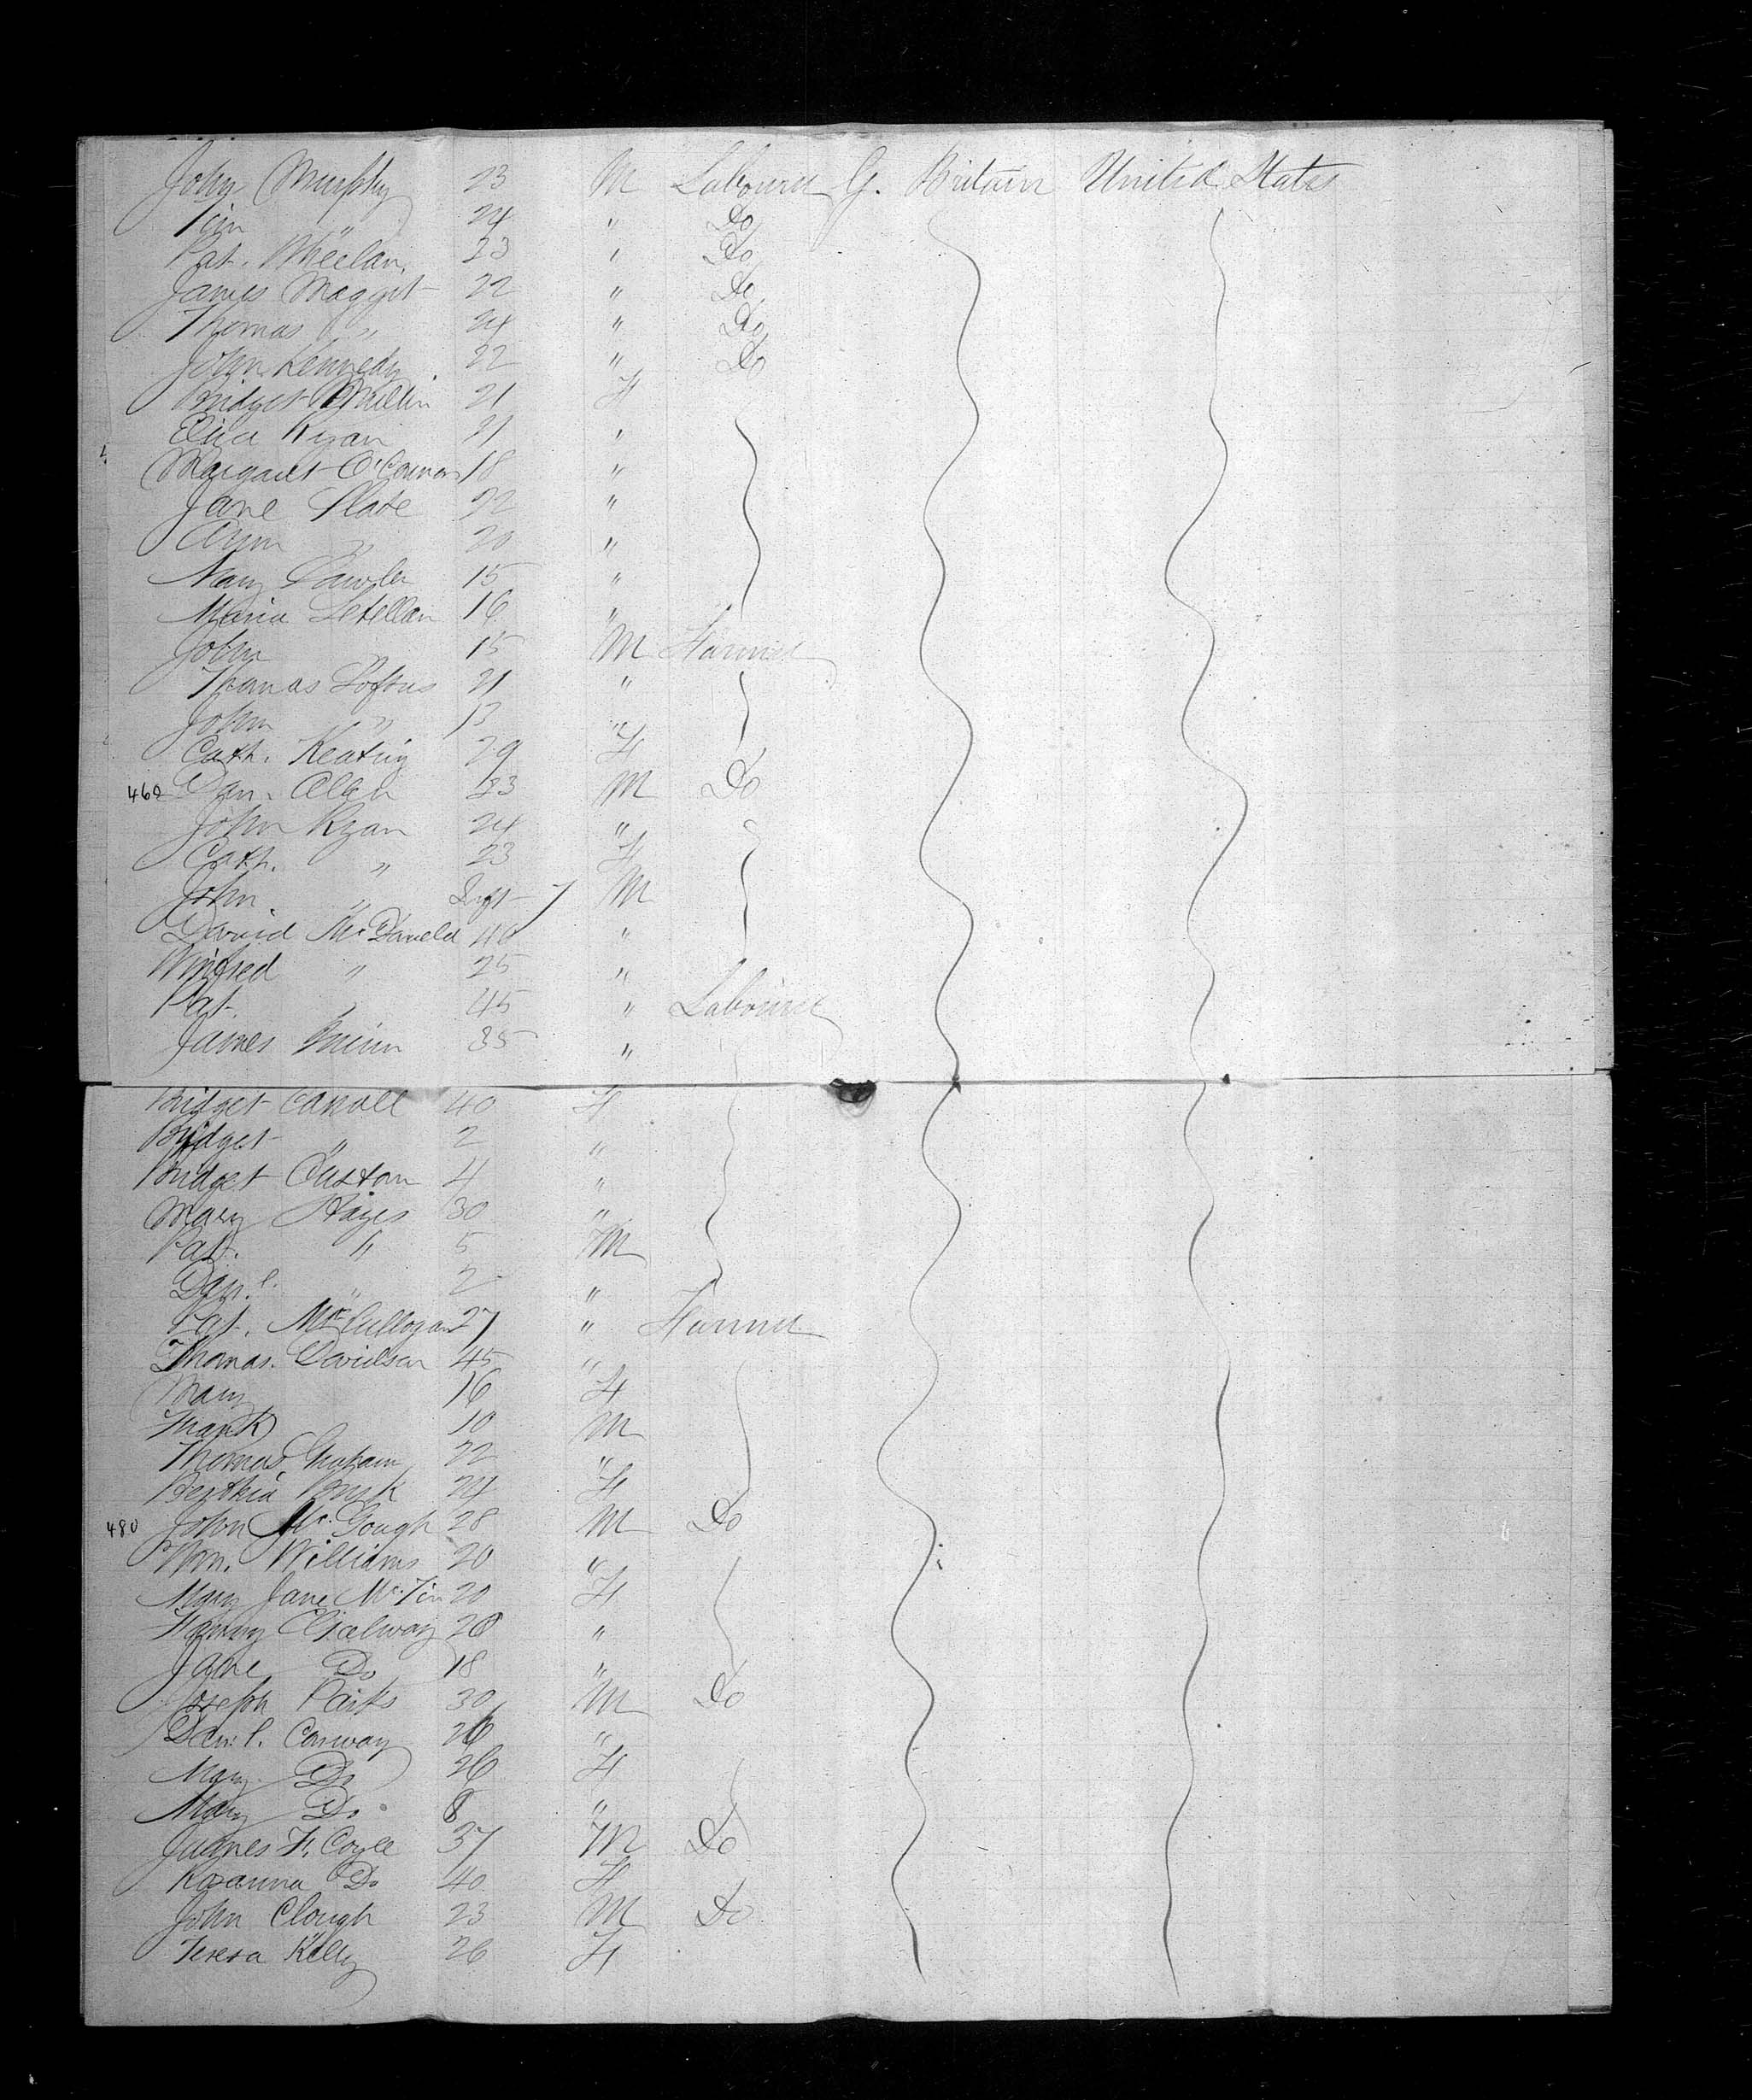 John Murphy 23 M Labourer G. Britain United States
Tim " 24 " Do
Pat. Wheelan 23 " Do
James Maggit 22 " Do
Thomas " 24 " Do
John Kennedy 22 " Do
Bridget Mullin 21 F
Eliza Ryan 21 "
Margaret O'Connor 18 "
Jane Slate 22 "
Ann " 20 "
Mary Lawler 15 "
Maria 16 "
John 15 M Farmer
Thomas Loftus 21 "
John " 13 "
Cath. Keating 29 F
460 Dan. Allen 33 M Do
John Ryan 24 "
Cath. " 23 F
John " Inft M
David McDaneld 40 "
Winfred " 25 "
Pat. " 45 " Labourer
James 35 "
Bridget Carroll 40 F
Bridget " 2 "
Bridget Custon 4 "
Mary Hayes 30 "
Pat. " 5 M
Danl. " 2 "
Pat. McCullogan 27 " Farmer
Thomas Davidson 45 "
Mary 16 F
Frank 10 M
Thomas Graham 22 "
Berthia 24 F
480 John McGough 28 M Do
Wm. Williams 20 "
Mary Jane 20 F
Fanny Galway 20 "
Jane Do 18 "
Joseph Parks 30 M Do
Danl. Conway 26 "
Mary Do 26 F
Mary Do 8 "
James F. Coyle 37 M Do
Rosanna Do 40 F
John Clough 23 M Do
Teresa Kelly 26 F